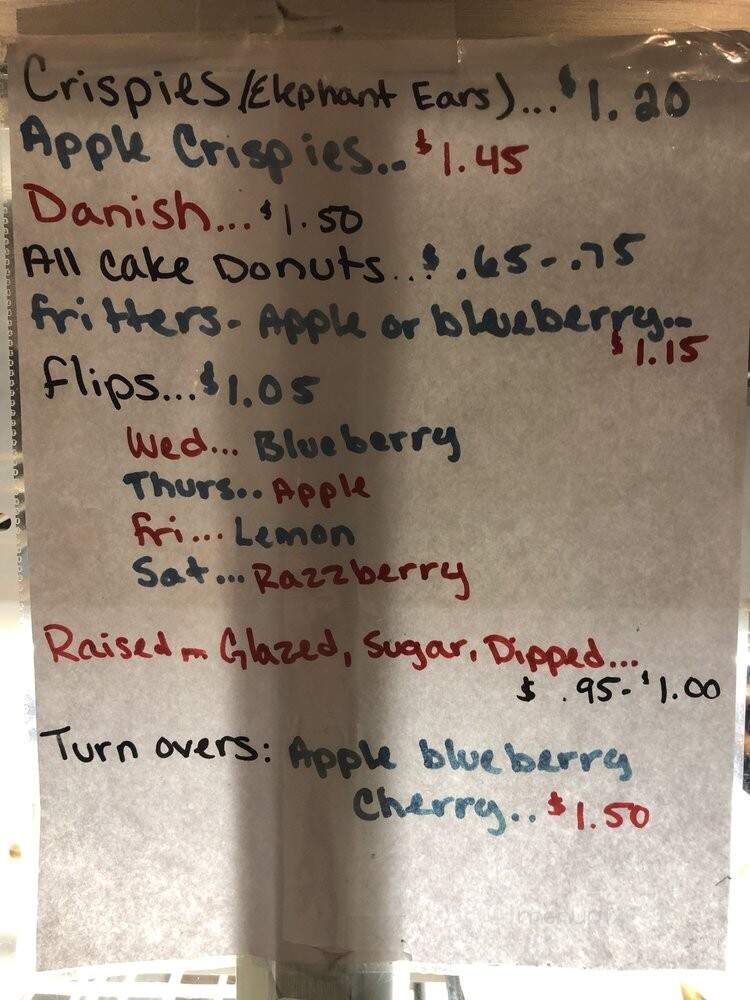 Crispies (Elephant Ears)...$1.20
Apple Crispies...$1.45
Danish...$1.50
All Cake Donuts...$.65-.75
fritters- Apple or blueberry...
$1.15
flips...$1.05
Wed... Blueberry
Thurs... Apple
fri... Lemon
Sat... Razzberry
Raised - Glazed, Sugar, Dipped...
$ .95-$1.00
Turn overs: Apple blueberry
Cherry..$1.50